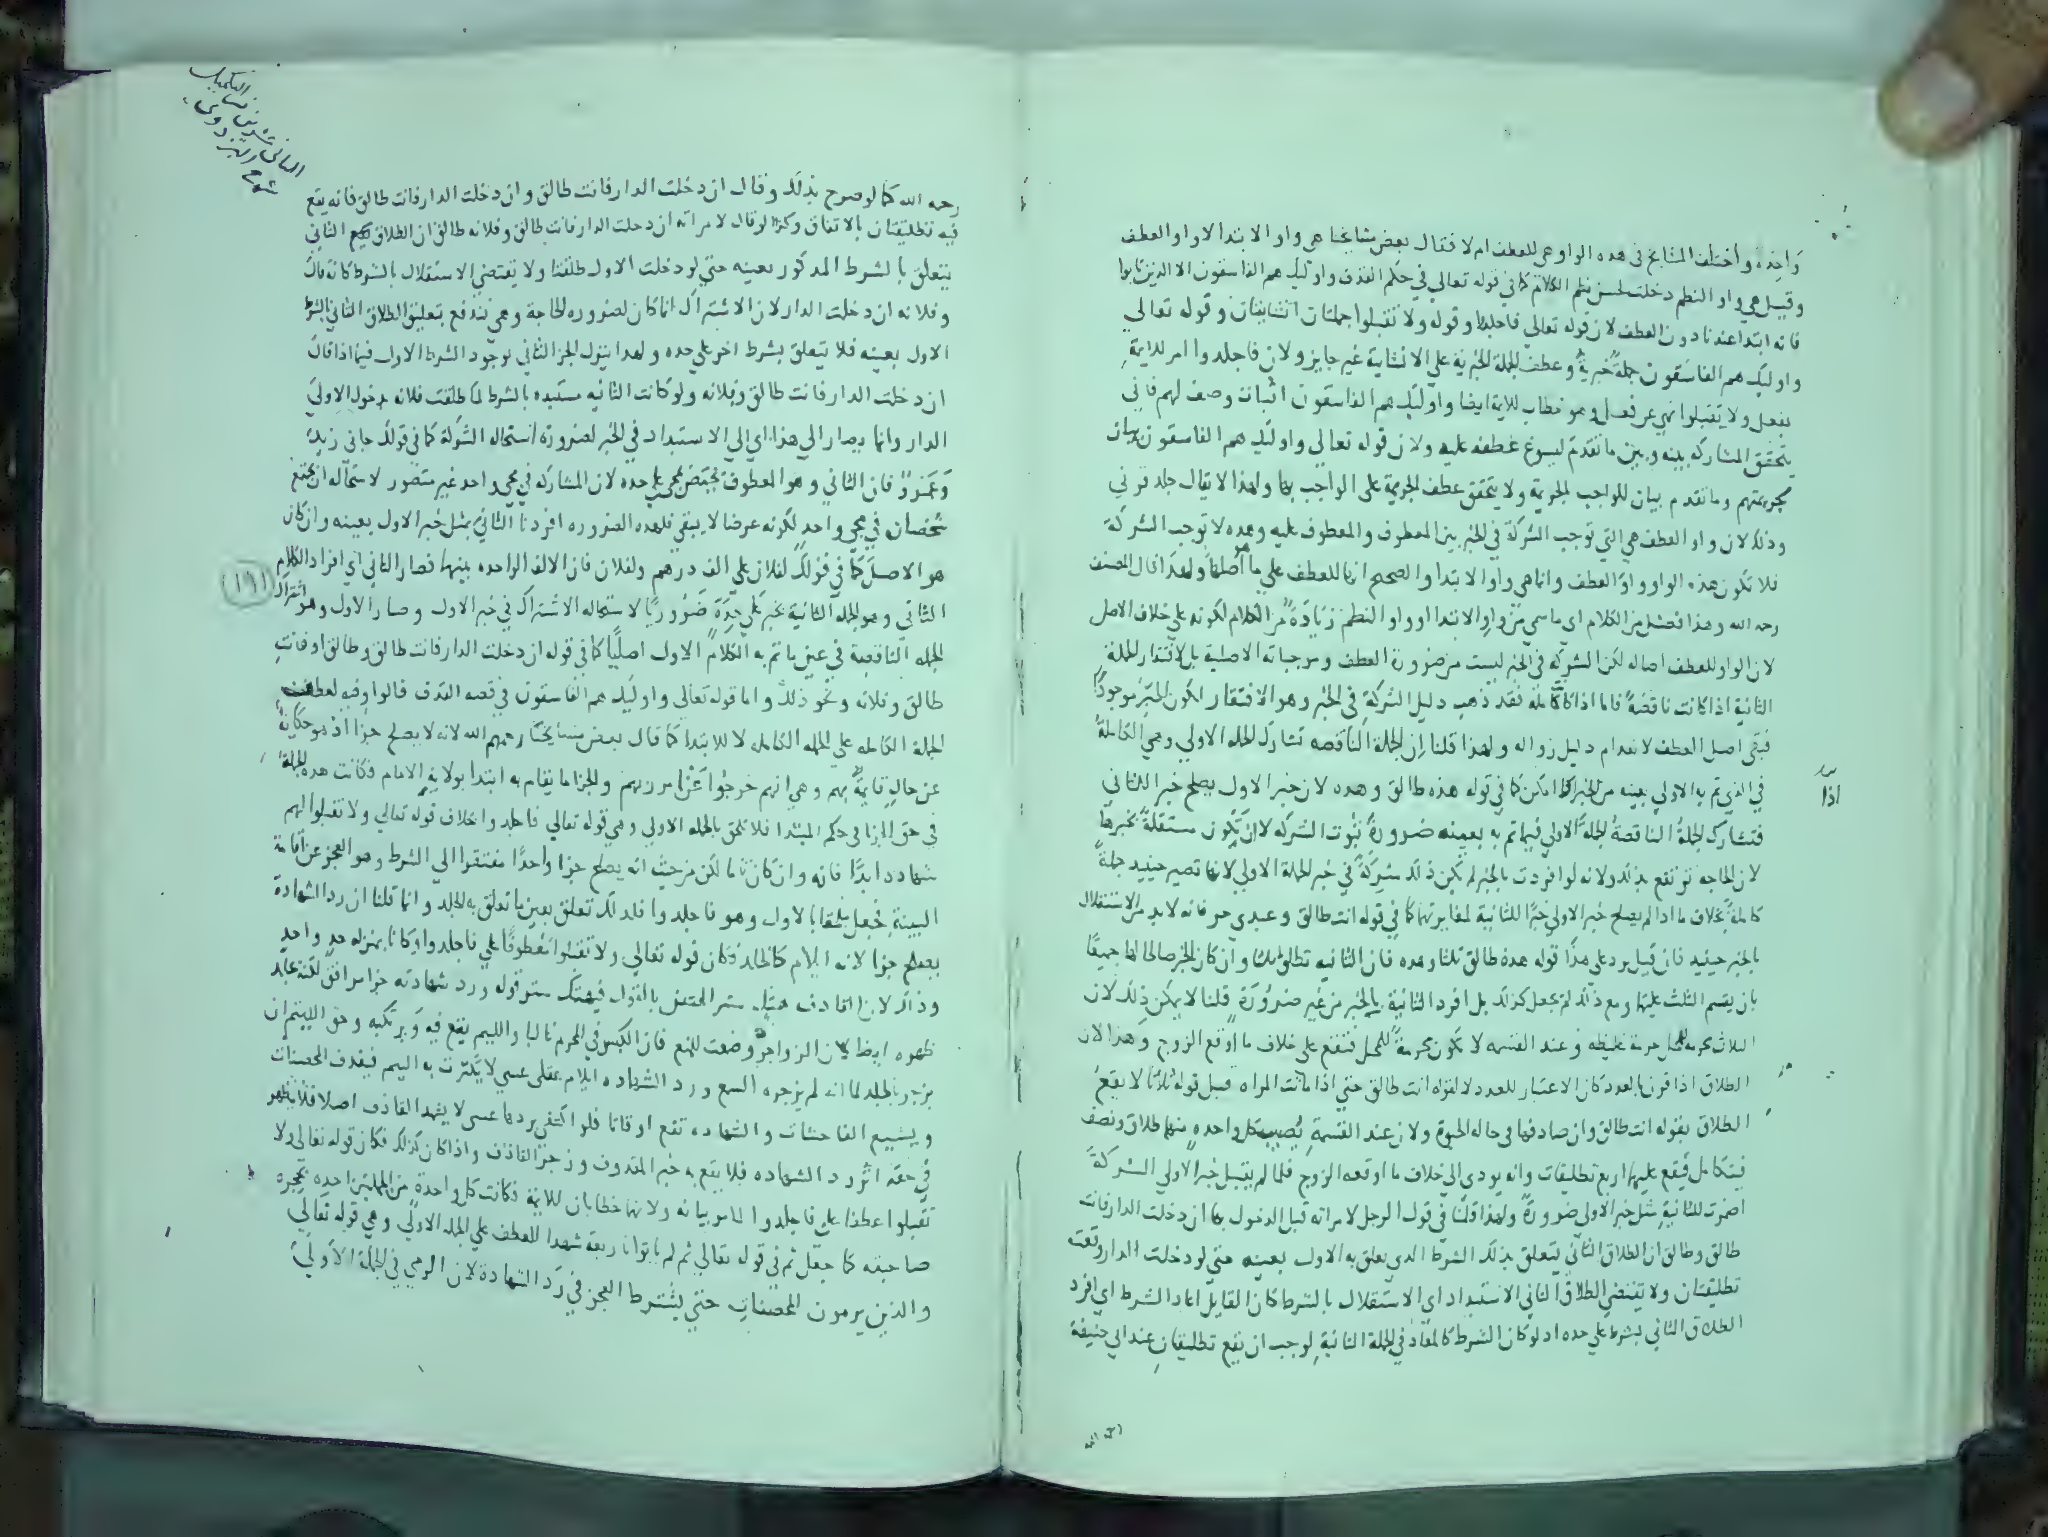 واحدة واختلف المشايخ في هذه الواو هي للعطف ام لا فقال بعض مشايخنا هي واو الابتدا لا واو العطف
وقيل هي واو النظم دخلت لحسن نظم الكلام كما في قوله تعالي في حكم القذف واوليك هم الفاسقون الا الذين تابوا
فانه ابتدا عندنا دون العطف لان قوله تعالي فاجلدوا وقوله ولا تقبلوا جملتان انشايتان وقوله تعالي
واوليك هم الفاسقون جملة خبرية وعطف الجملة الخبرية علي الانشاية غير جايز ولان فاجلدوا امر للايمة
بفعل ولا تقبلوا نهي عن فعل وهو خطاب للايمة ايضا واوليك هم الفاسقون اثبات وصف لهم فاني
يتحقق المشاركة بينه وبين ما تقدم ليسوغ عطفه عليه ولان قوله تعالي واوليك هم الفاسقون بيان
لجريمتهم وما تقدم بيان للواجب بالجريمة ولا يتحقق عطف الجريمة علي الواجب بها ولهذا لا يقال جلد فزني
وذلك لان واو العطف هي التي توجب الشركة في الخبر بين المعطوف والمعطوف عليه وهذه لا توجب الشركة
فلا تكون هذه الواو واو العطف وانما هي واو الابتدا والصحيح انها للعطف علي ما هو اصلها ولهذا قال المصنف
رحمه الله وهذا فضل من الكلام اي ما سمي من واو الابتدا او واو النظم زيادة من الكلام لكونه علي خلاف الاصل
لان الواو للعطف اصاله لكن الشركه في الخبر ليست من ضرورة العطف وموجباته الاصلية بل لافتقار الجملة
الثانية اذا كانت ناقصة فاما اذا كانت كاملة فقد ذهب دليل الشركة في الخبر وهو الافتقار لكون الخبر موجودًا
فبقي اصل العطف لانعدام دليل زواله ولهذا قلنا ان الجملة الناقصه تشارك الجمله الاولي وهي الكاملة
في الذي تم به الاولي بعينه من الخبر اذا امكن كما في قوله هذه طالق وهذه لان خبر الاول يصلح خبر اللثاني
اذا
فتشارك الجملة الناقصة الجملة الاولي فيما تم به بعينه ضرورة ثبوت الشركه لا ان تكون مستقلة بخبرها
لان الحاجه ترتفع بذلك ولانه لو افردت بالخبر لم يكن ذلك شركة في خبر الجملة الاولي لانها تصير حينيد جملة
كاملة بخلاف ما اذا لم يصلح خبر الاولي خبرًا للثانية لمغايرتهما كما في قوله انت طالق وعبدي حر فانه لابد من الاستقلال
بالخبر حينيد فان قيل يرد علي هذا قوله هذه طالق ثلثا وهذه فان الثانيه تطلق ثلثا وان كان الخبر صالحا لهما جميعًا
بان يقسم الثلث عليهما ومع ذلك لم يجعل كذلك بل افرد الثانية بالخبر من غير ضرورة قلنا لا يمكن ذلك لان
الثلاث محرمه للمحل حرمة غليظه وعند القسمه لا تكون محرمة للمحل فتقع علي خلاف ما اوقع الزوج وهذا لان
الطلاق اذا قرن بالعدد كان الاعتبار للعدد لا لقوله انت طالق حتي اذا ماتت المراه قبل قوله ثلاثا لا يقع
الطلاق بقوله انت طالق وان صادفها في حاله الحيوة ولان عند القسمة يصيب كل واحده منهما طلاق ونصف
فيتكامل فيقع عليهما اربع تطليقات وانه يودي الي خلاف ما اوقعه الزوج فلما لم يقبل خبر الاولي الشركة
اضمرت للثانية مثل خبر الاولي ضرورة ولهذا قلنا في قول الرجل لامراته قبل الدخول بها ان دخلت الدار فانت
طالق وطالق ان الطلاق الثاني يتعلق بذلك الشرط الذي يعلق به الاول بعينه حتي لو دخلت الدار وقعت
تطليقتان ولا يقتضي الطلاق الثاني الاستبداد اي الاستقلال بالشرط كان القايل اعاد الشرط اي افرد
الطلاق الثاني بشرط علي حده اد لو كان الشرط كالمعاد في الجملة الثانية لوجب ان يقع تطليقتان عند ابي حنيفة
رحمه الله
الثاني عشر من
شرح البزدوي
رحمه الله كما لو صرح بذلك وقال ان دخلت الدار فانت طالق وان دخلت الدار فانت طالق فانه يقع
فيه تطليقتان بالاتفاق وكذا لو قال لامراته ان دخلت الدار فانت طالق وفلانه طالق ان الطلاق الثاني
يتعلق بالشرط المذكور بعينه حتي لو دخلت الاول طلقتا ولا يقتضي الاستقلال بالشرط كانه قال
وفلانه ان دخلت الدار لان الاشتراك انما كان لضروره الحاجة وهي تندفع بتعليق الطلاق الثاني بالشرط
الاول بعينه فلا يتعلق بشرط اخر علي حده ولهذا ينزل الجزا الثاني بوجود الشرط الاول فيما اذا قال
ان دخلت الدار فانت طالق وفلانه ولو كانت الثانيه مستبده بالشرط لما طلقت فلانه بدخول الاولي
الدار وانما يصار الي هذا اي الي الاستبداد في الخبر لضرورة استحاله الشركة كما في قولك جاني زيد
وعمرو فان الثاني وهو المعطوف يختص بمجي علي حده لان المشاركه في مجي واحد غير متصور لاستحاله ان يجتمع
شخصان في مجي واحد لكونه عرضا لا يبقي فلهذه الضروره افردنا الثاني بمثل خبر الاول بعينه وان كان
هو الاصل كما في قولك لفلان علي الف درهم ولفلان فان الالف الواحده بينهما فصار الثاني اي افراد الكلام
(١٩١)
الثاني وهو الجملة الثانية بخبر علي حدة ضروريًا لاستحاله الاشتراك في خبر الاول وصار الاول وهو اشتراك
الجمله الناقصة في عين ما تم به الكلام الاول اصليًا كما في قوله ان دخلت الدار فانت طالق وطالق او فانت
طالق وفلانه ونحو ذلك واما قوله تعالي واوليك هم الفاسقون في قصه القذف قالوا وفيه لعطف
الجملة الكامله علي الجمله الكامله لا للابتدا كما قال بعض مشايخنا رحمهم الله لانه لا يصلح جزا اذ هو حكاية
عن حال قايمة بهم وهي انهم خرجوا عن امر ربهم والجزا ما يقام به ابتدا بولاية الامام فكانت هذه الجملة
في حق الجزا في حكم المبتدا فلا تلحق بالجمله الاولي وهي قوله تعالي فاجلدوا بخلاف قوله تعالي ولا تقبلوا لهم
شهاده ابدًا فانه وان كان تاما لكن من حيث انه يصلح جزا واحدًا مفتقرا الي الشرط وهو العجز عن اقامة
البينة فجعل ملحقا بالاول وهو فاجلدوا فلذلك تعلق بعين ما تعلق به الجلد وانما قلنا ان رد الشهادة
يصلح جزا لانه ايلام كالجلد فكان قوله تعالي ولا تقبلوا معطوفًا علي فاجلدوا وكانا بمنزله حد واحد
وذلك لان القاذف هتك ستر المقذوف بالقول فيهتك ستر قوله ورد شهادته جزا موافق لكنه غايد
ظهره ايضا لان الزواجر وضعت للمنع فان الكيس في المحرم غالبا واللييم يقع فيه ويرتكبه وحق اللييم ان
يزجر بالجلد لما انه لم يزجره السمع ورد الشهاده ايلام عقلي عسي لا يكترث به اليم فيقذف المحصنات
ويشيع الفاحشات والشهاده تقع اوقاتا فلو اكتفي بردها عسي لا يشهد القاذف اصلا فلا يظهر
في حقه اثر رد الشهاده فلا يقع به خبر المقذوف وزجر القاذف واذا كان كذلك فكان قوله تعالي ولا
تقبلوا عطفا علي فاجلدوا لما مر بيانه ولانهما خطابان للايمة فكانت كل واحدة من الجملتين اخذه بحجزه
صاحبته كما جعل ثم في قوله تعالي ثم لم ياتوا باربعة شهدا للعطف علي الجمله الاولي وهي قوله تعالي
والذين يرمون المحصنات حتي يشترط العجز في رد الشهادة لان الرمي في الجملة الاولي